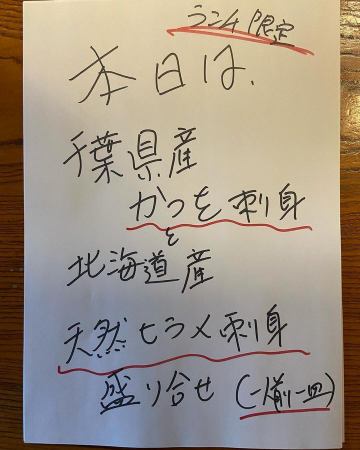 ランチ限定
本日は、
千葉県産
かつを刺身
と
北海道産
天然ヒラメ刺身
盛り合せ(一人前一皿)